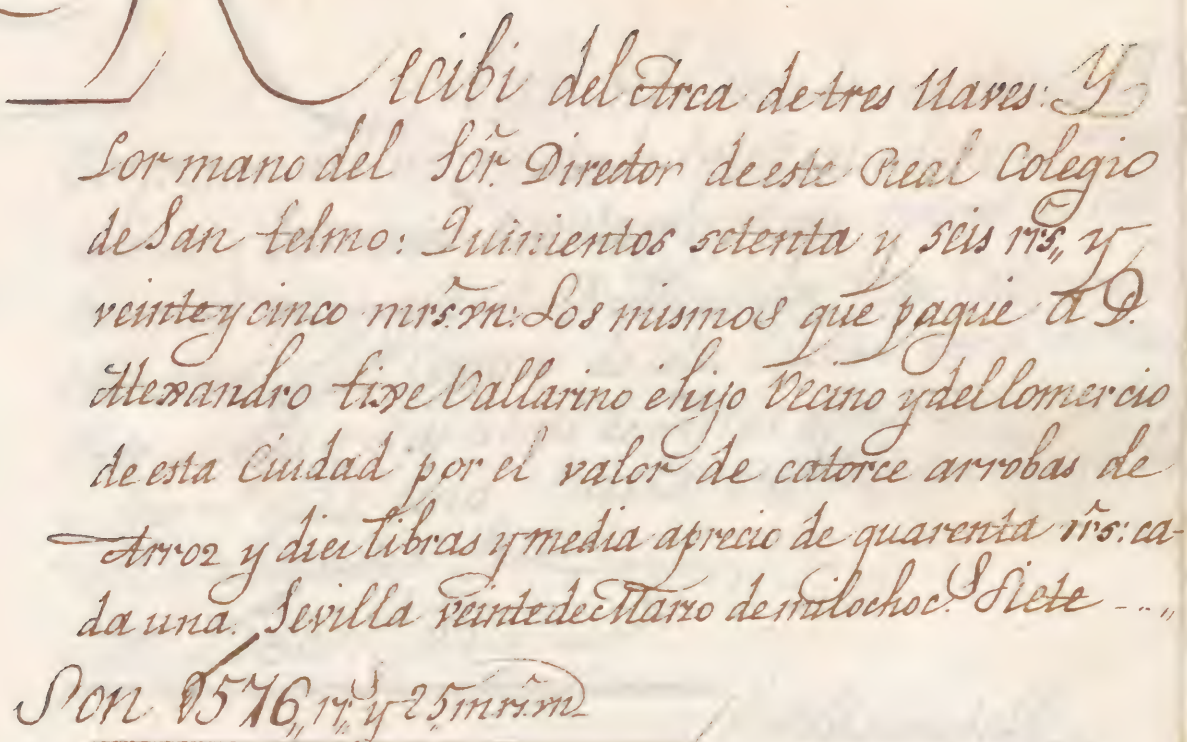 Recibi del Arca de tres llaves: Y
Por mano del Sõr. Director de este Real Colegio
de San telmo: Quinientos setenta y seis rrs,, y
veinte y cinco mrs. vn: Los mismos que pague a D.
Alexandro tixe Vallarino é hijo Vecino y del Comercio
de esta Ciudad por el valor de catorce arrobas de
Arroz y diez libras y media a precio de quarenta rrs: ca-
da una. Sevilla veinte de Marzo de mil ochoc.s Siete - - ..,,
Son 576,, rr.s y 25 mrs. vn